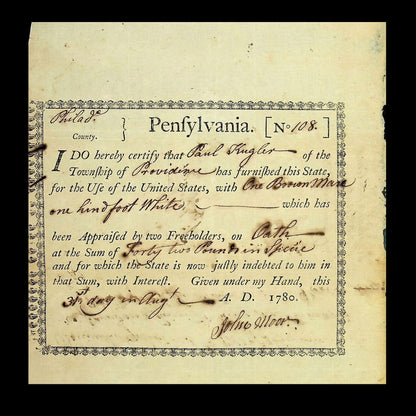 Philada. } Pensylvania. [No 108.]
County.
I DO hereby certify that Paul Kugler of the
Township of Providence has furnished this State,
for the Use of the United States, with One Brown Mare
one hind foot White which has
been Appraised by two Freeholders, on Oath
at the Sum of Forty two Pounds in Specie
and for which the State is now justly indebted to him in
that Sum, with Interest. Given under my Hand, this
day in Augt A. D. 1780.
John Moor.